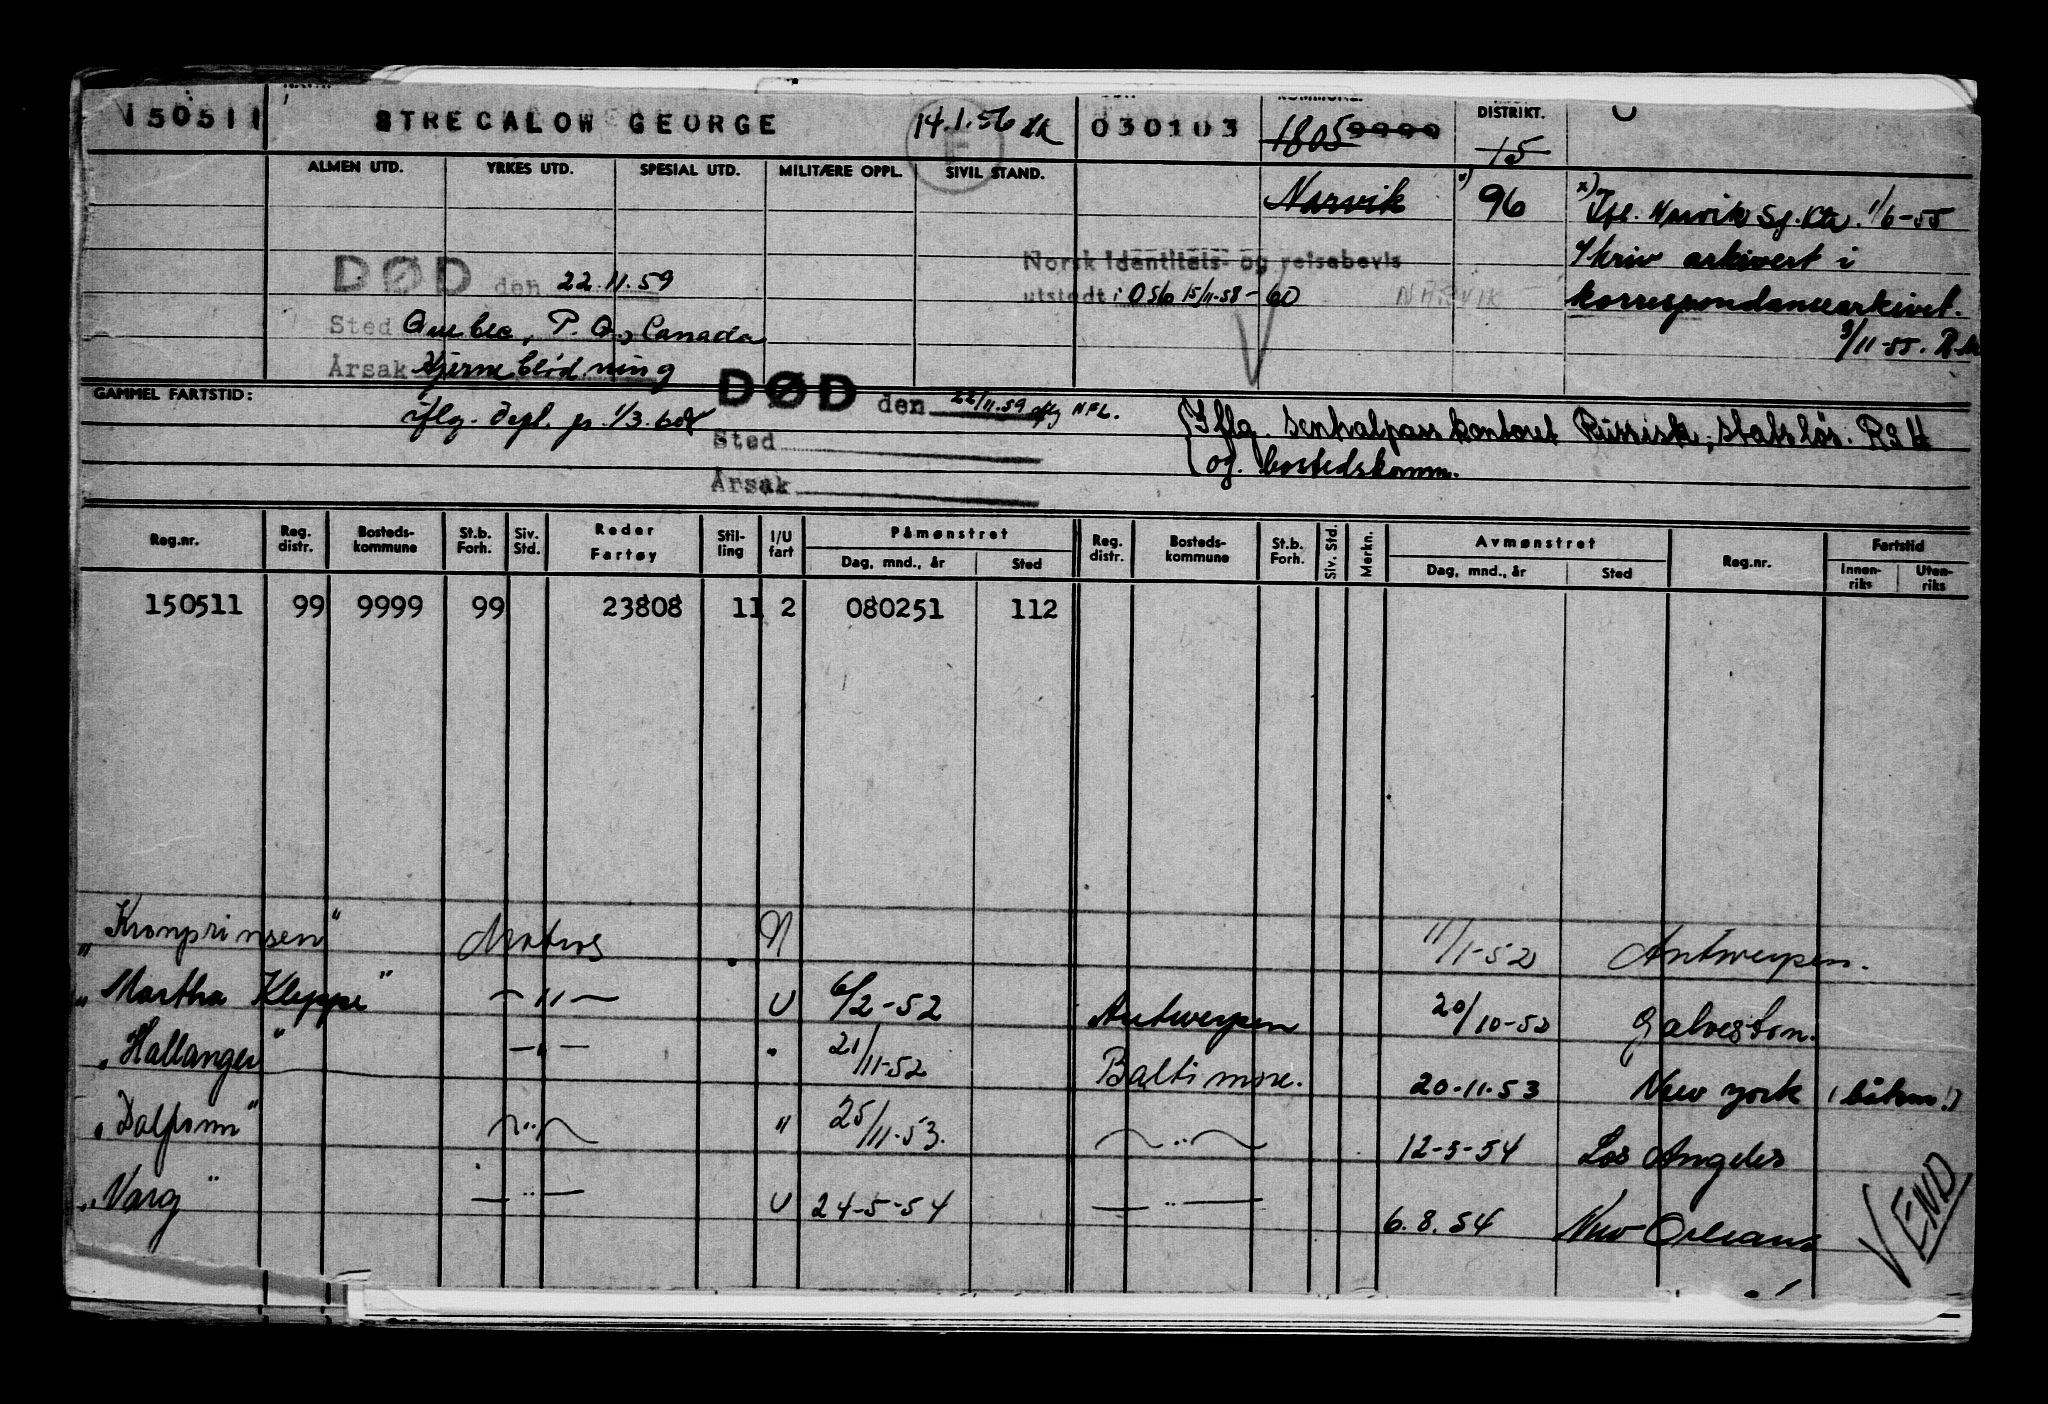 150511 STRECALOW GEORGE 14.1.56 030103 1805 9999 DISTRIKT. 15
ALMEN UTD. YRKES UTD. SPESIAL UTD. MILITÆRE OPPL. SIVIL STAND.
Narvik x) 96 x) Ifl. Narvik Sj.ktr. 1/6-55
Skriv arkivert i
korrespondansearkivet.
3/11-55.
Norsk identitets- og reisebevis
utstedt i Oslo 15/11.58-60 NARVIK
DØD den 22.11.59
Sted Quebec, P.Q., Canada
Årsak Hjerneblødning
GAMMEL FARTSTID: iflg. depl. pr. 1/3.60
DØD den 22/11.59 iflg NPL.
Sted
Årsak
Iflg. sentralpasskontoret Russisk, statsløs.
og. bostedskomm.
Reg.nr. Reg. distr. Bosteds-kommune St.b. Forh. Siv. Std. Reder Fartøy Stil-ling I/U fart Påmønstret Dag, mnd., år Sted Reg. distr. Bosteds-kommune St.b. Forh. Siv. Std. Merkn. Avmønstret Dag, mnd., år Sted Reg.nr. Fartstid Innen-riks Uten-riks
150511 99 9999 99 23808 11 2 080251 112
„Kronprinsen" Matros N 11/1-52 Antwerpen.
„Martha Kleppe" —"— U 6/2-52 Antwerpen 20/10-52 Galveston.
„Hallanger" —"— " 21/11-52 Baltimore. 20-11-53 New York (båtsm.!)
„Dalfonn" —"— " 25/11-53. —"— 12-5-54 Los Angeles
„Varg" —"— U 24-5-54 —"— 6.8.54 New Orleans
VEND